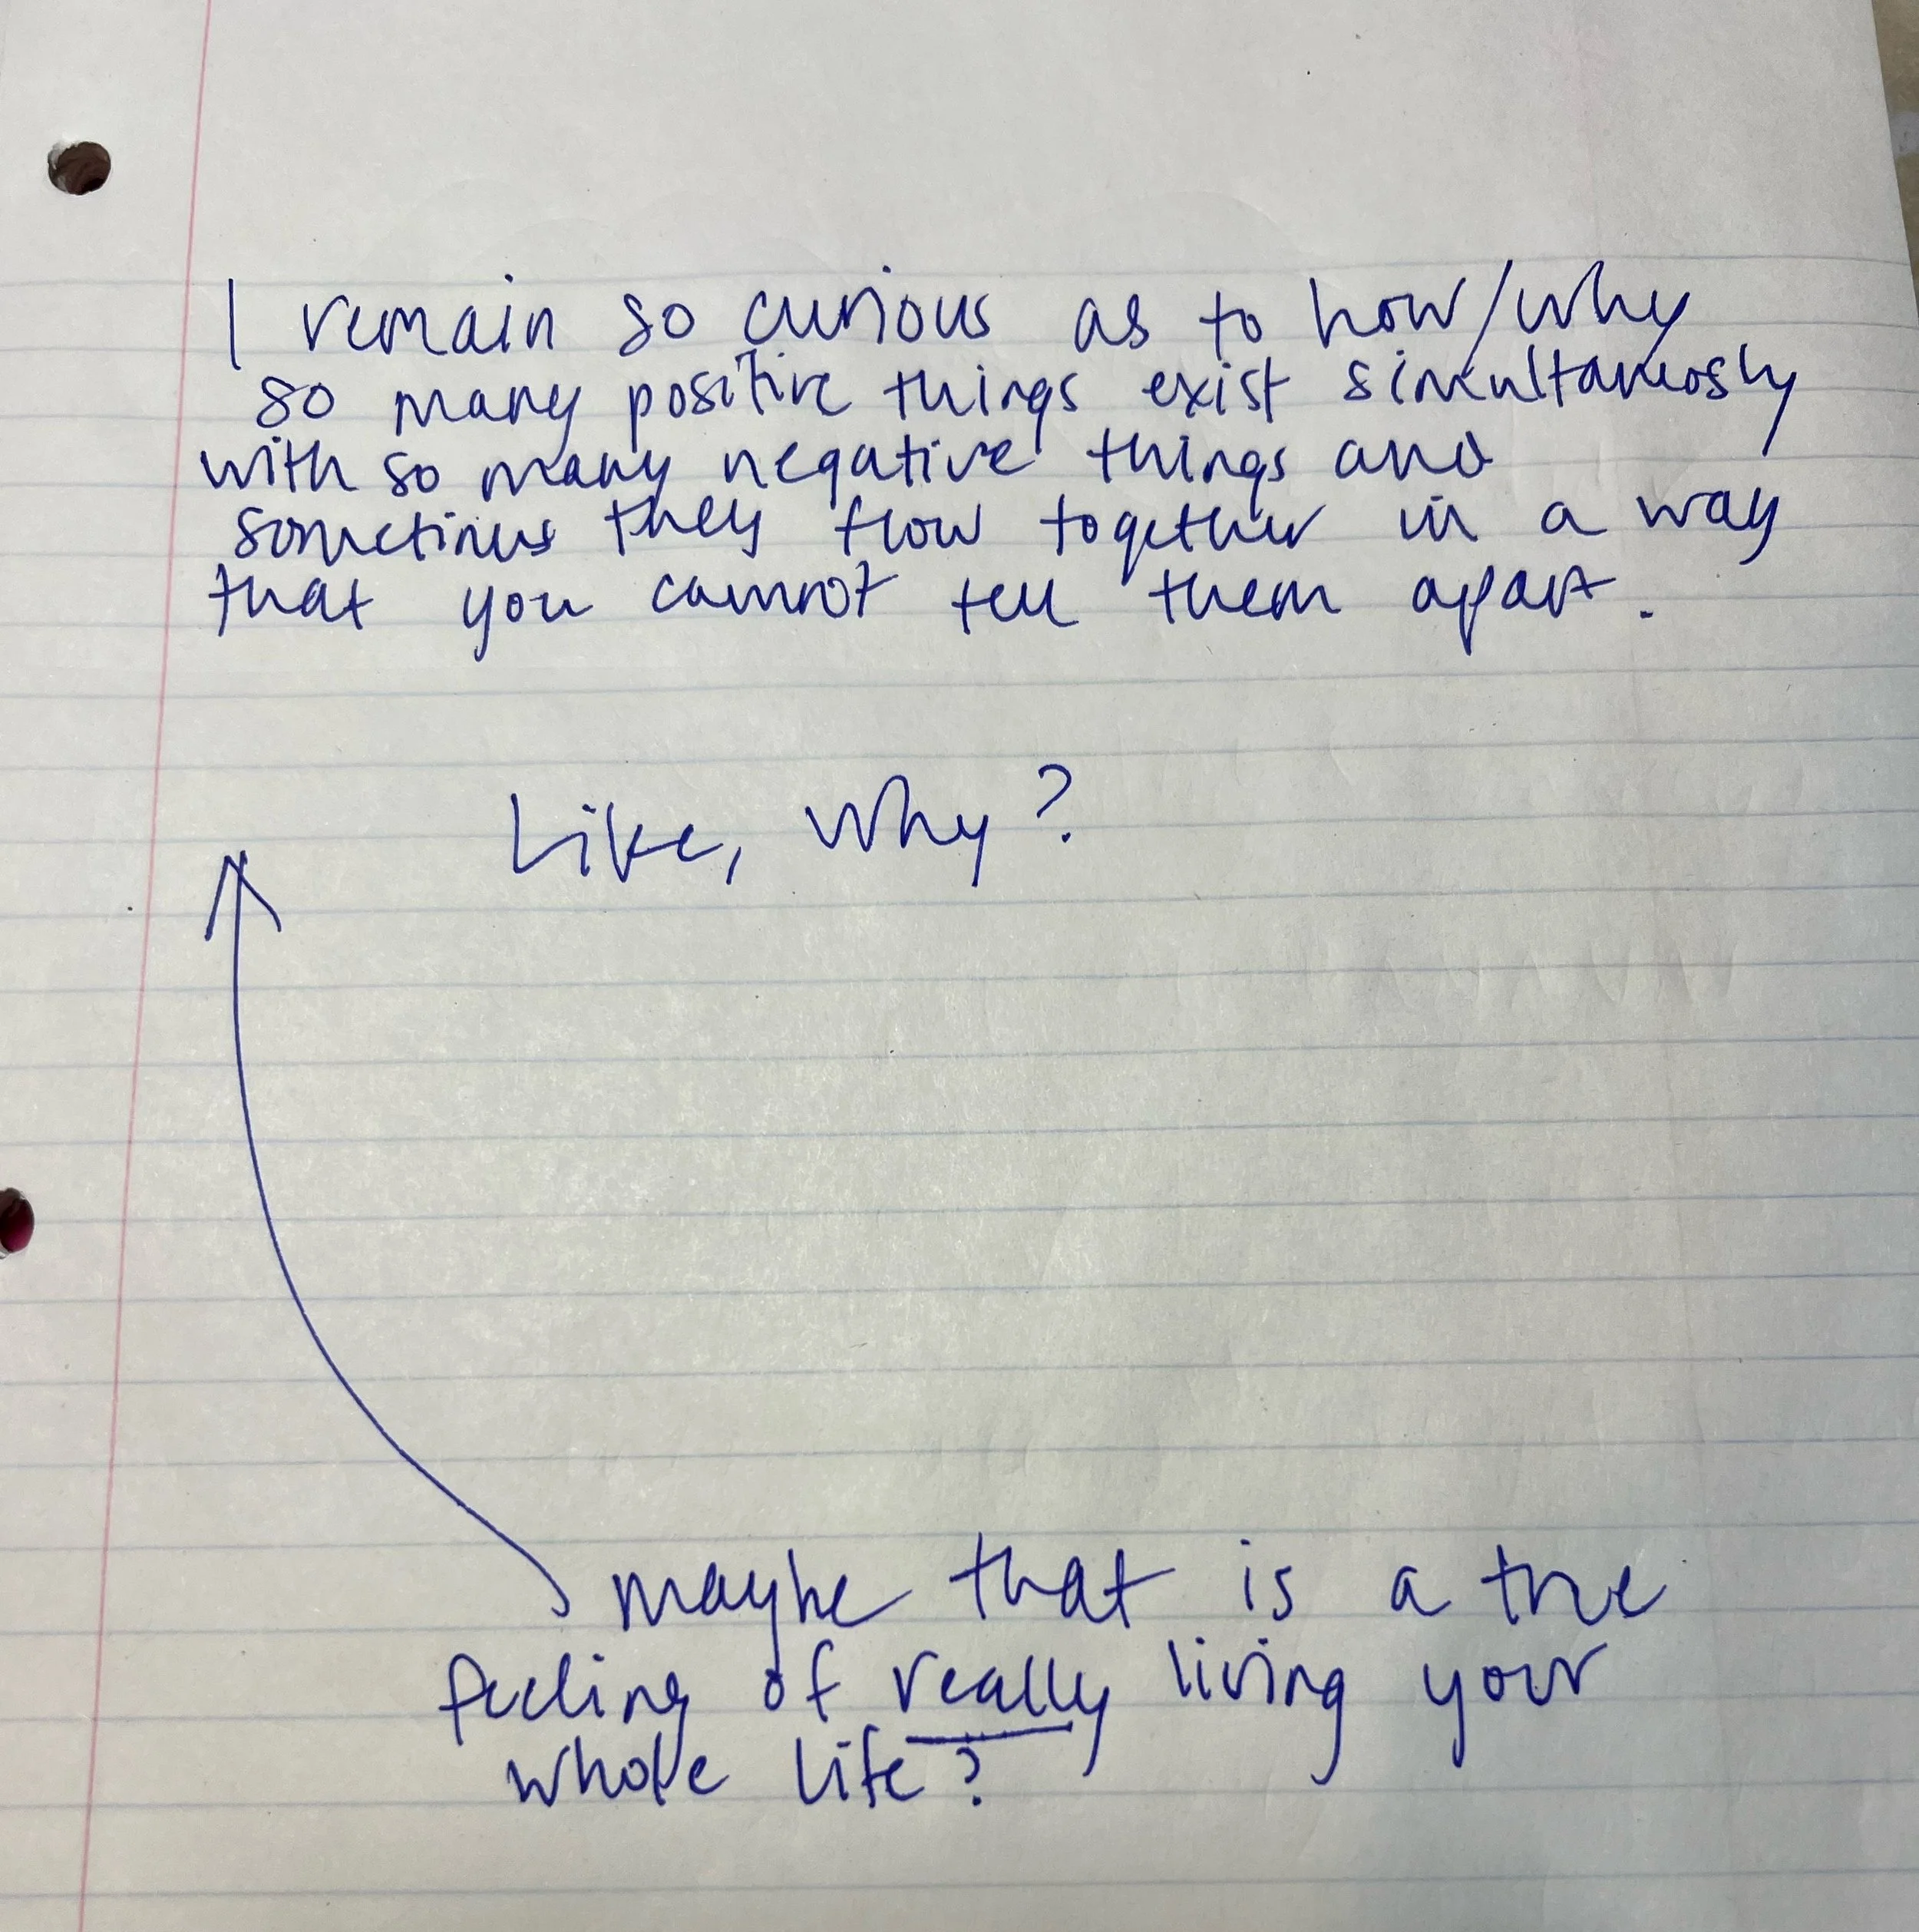 I remain so curious as to how/why
so many positive things exist simultaneosly
with so many negative things and
sometimes they flow together in a way
that you cannot tell them apart.
Like, why?
maybe that is a true
feeling of really living your
whole life?